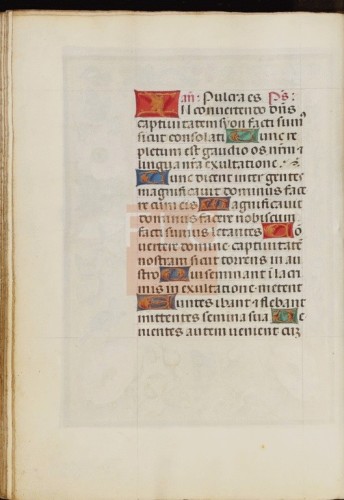 an: Pulcra es Ps:
In convertendo dn̄s
captivitatem syon facti sum9
sicut consolati Tunc re
pletum est gaudio os nr̄m &
lingua nr̄a exultatione.
Tunc dicent inter gentes
magnificavit dominus face
re cum eis Magnificavit
dominus facere nobiscum
facti sumus letantes Cō
vertere domine captivitatē
nostram sicut torrens in au
stro Qui seminant ī lacri
mis in exultatione metent
Euntes ibant & flebant
mittentes semina sua Ve
nientes autem venient cuz